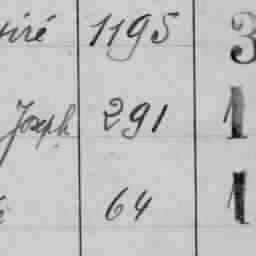 siré 1195 3
Joseph 291 1
64 1